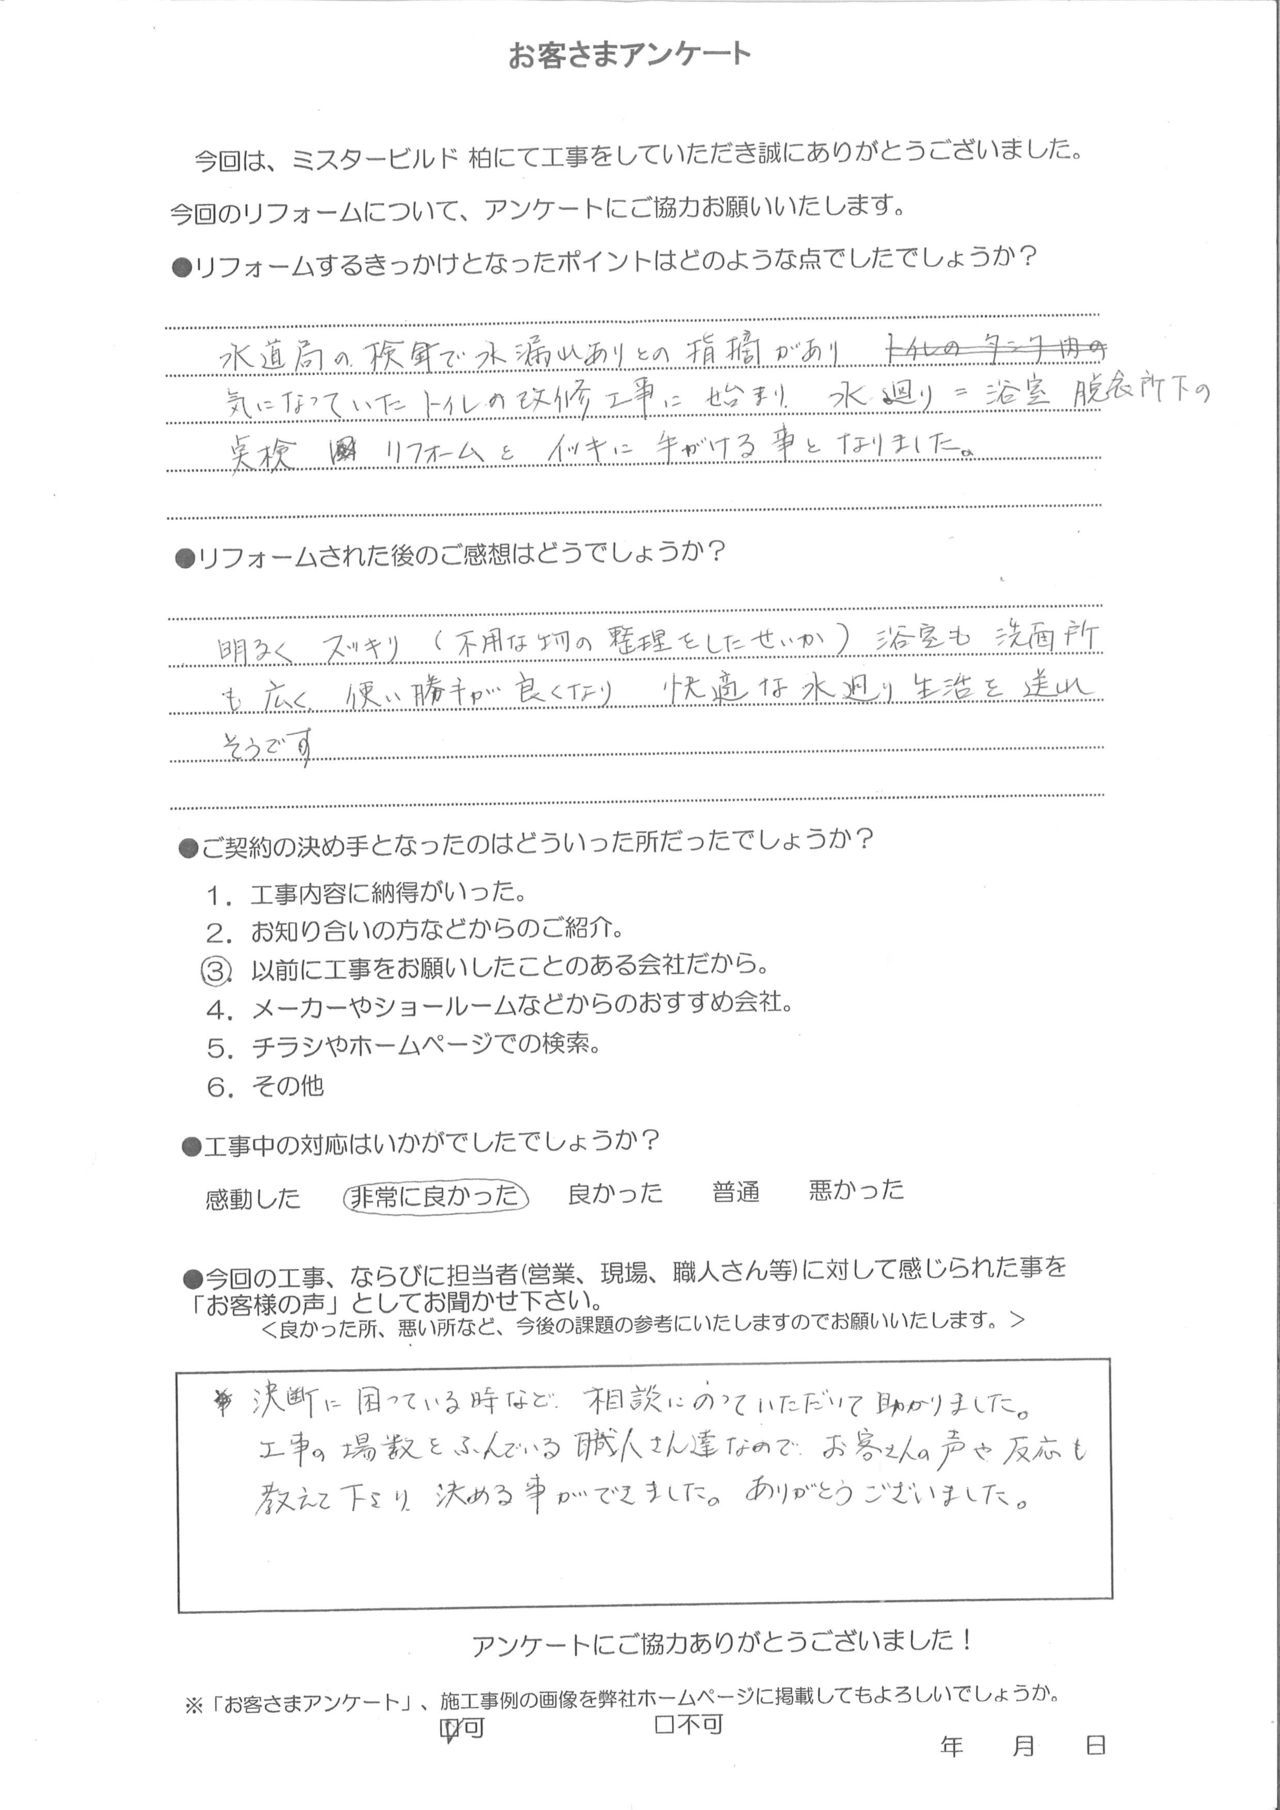 お客さまアンケート
今回は、ミスタービルド 柏にて工事をしていただき誠にありがとうございました。
今回のリフォームについて、アンケートにご協力お願いいたします。
●リフォームするきっかけとなったポイントはどのような点でしたでしょうか？
水道局の検針で水漏れありとの指摘があり トイレのタンク内の
気になっていたトイレの改修工事に始まり 水廻り＝浴室 脱衣所下の
点検 リフォームとイッキに手がける事となりました。
●リフォームされた後のご感想はどうでしょうか？
明るく スッキリ（不用な物の整理をしたせいか）浴室も 洗面所
も広く、使い勝手が良くなり 快適な水廻り生活を送れ
そうです
●ご契約の決め手となったのはどういった所だったでしょうか？
1．工事内容に納得がいった。
2．お知り合いの方などからのご紹介。
③．以前に工事をお願いしたことのある会社だから。
4．メーカーやショールームなどからのおすすめ会社。
5．チラシやホームページでの検索。
6．その他
●工事中の対応はいかがでしたでしょうか？
感動した 非常に良かった 良かった 普通 悪かった
●今回の工事、ならびに担当者(営業、現場、職人さん等)に対して感じられた事を
「お客様の声」としてお聞かせ下さい。
＜良かった所、悪い所など、今後の課題の参考にいたしますのでお願いいたします。＞
決断に困っている時など、相談にのっていただいて助かりました。
工事の場数をふんでいる職人さん達なので、お客さんの声や反応も
教えて下さり、決める事ができました。ありがとうございました。
アンケートにご協力ありがとうございました！
※「お客さまアンケート」、施工事例の画像を弊社ホームページに掲載してもよろしいでしょうか。
☑可 □不可
年 月 日